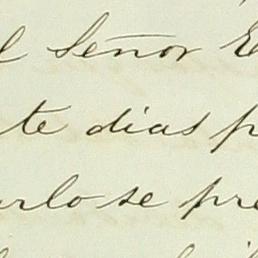 l Señor E
te dias p
rlo se pre